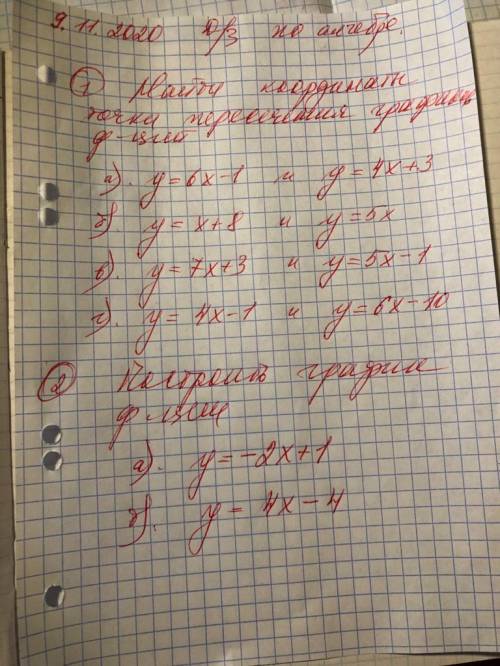 9.11.2020 Д/З по алгебре.
① Найти координат
точки пересечения графиков
ф-ций
а). y=6x-1 и y=4x+3
б). y=x+8 и y=5x
в). y=7x+3 и y=5x-1
г). y=4x-1 и y=6x-10
② Построить график
ф-ции
а). y=-2x+1
б). y=4x-4